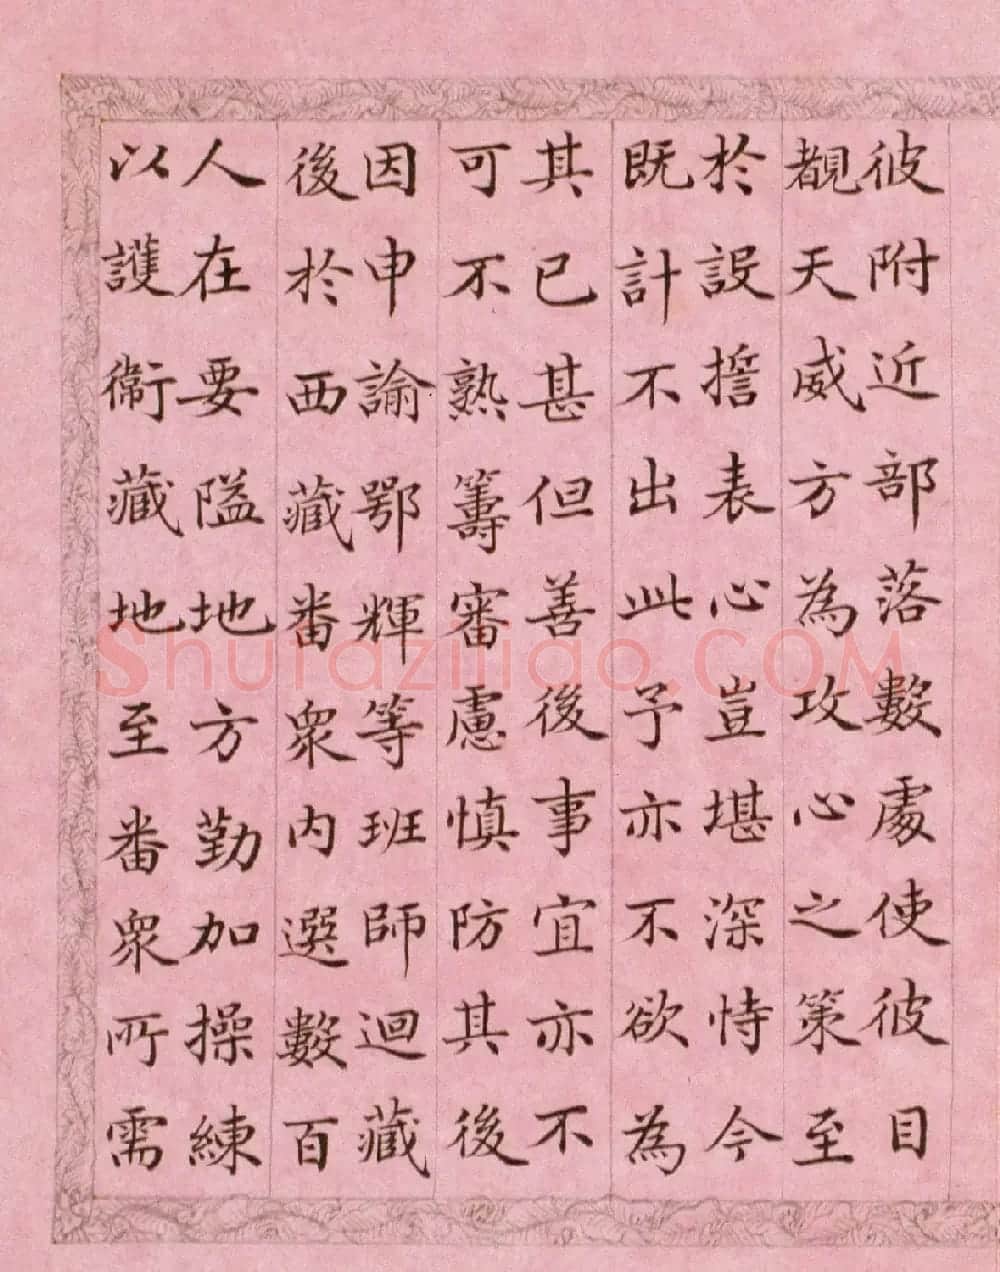 彼附近部落數處使彼目
覩天威方為攻心之策至
於設擔表心豈堪深恃今
既計不出此予亦不欲為
其已甚但善後事宜亦不
可不熟籌審慮慎防其後
因申諭鄂輝等班師迴藏
後於西藏番眾內選數百
人在要隘地方勤加操練
以護衛藏地至番眾所需
Shufaziliao.COM